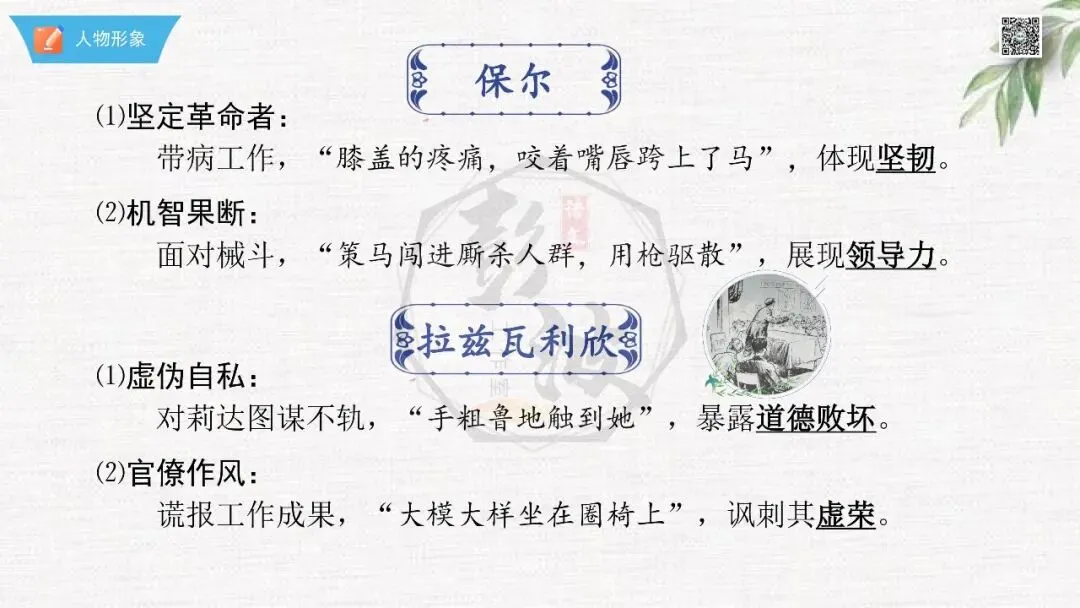 人物形象
保尔
⑴坚定革命者：
带病工作，“膝盖的疼痛，咬着嘴唇跨上了马”，体现坚韧。
⑵机智果断：
面对械斗，“策马闯进厮杀人群，用枪驱散”，展现领导力。
拉兹瓦利欣
⑴虚伪自私：
对莉达图谋不轨，“手粗鲁地触到她”，暴露道德败坏。
⑵官僚作风：
谎报工作成果，“大模大样坐在圈椅上”，讽刺其虚荣。